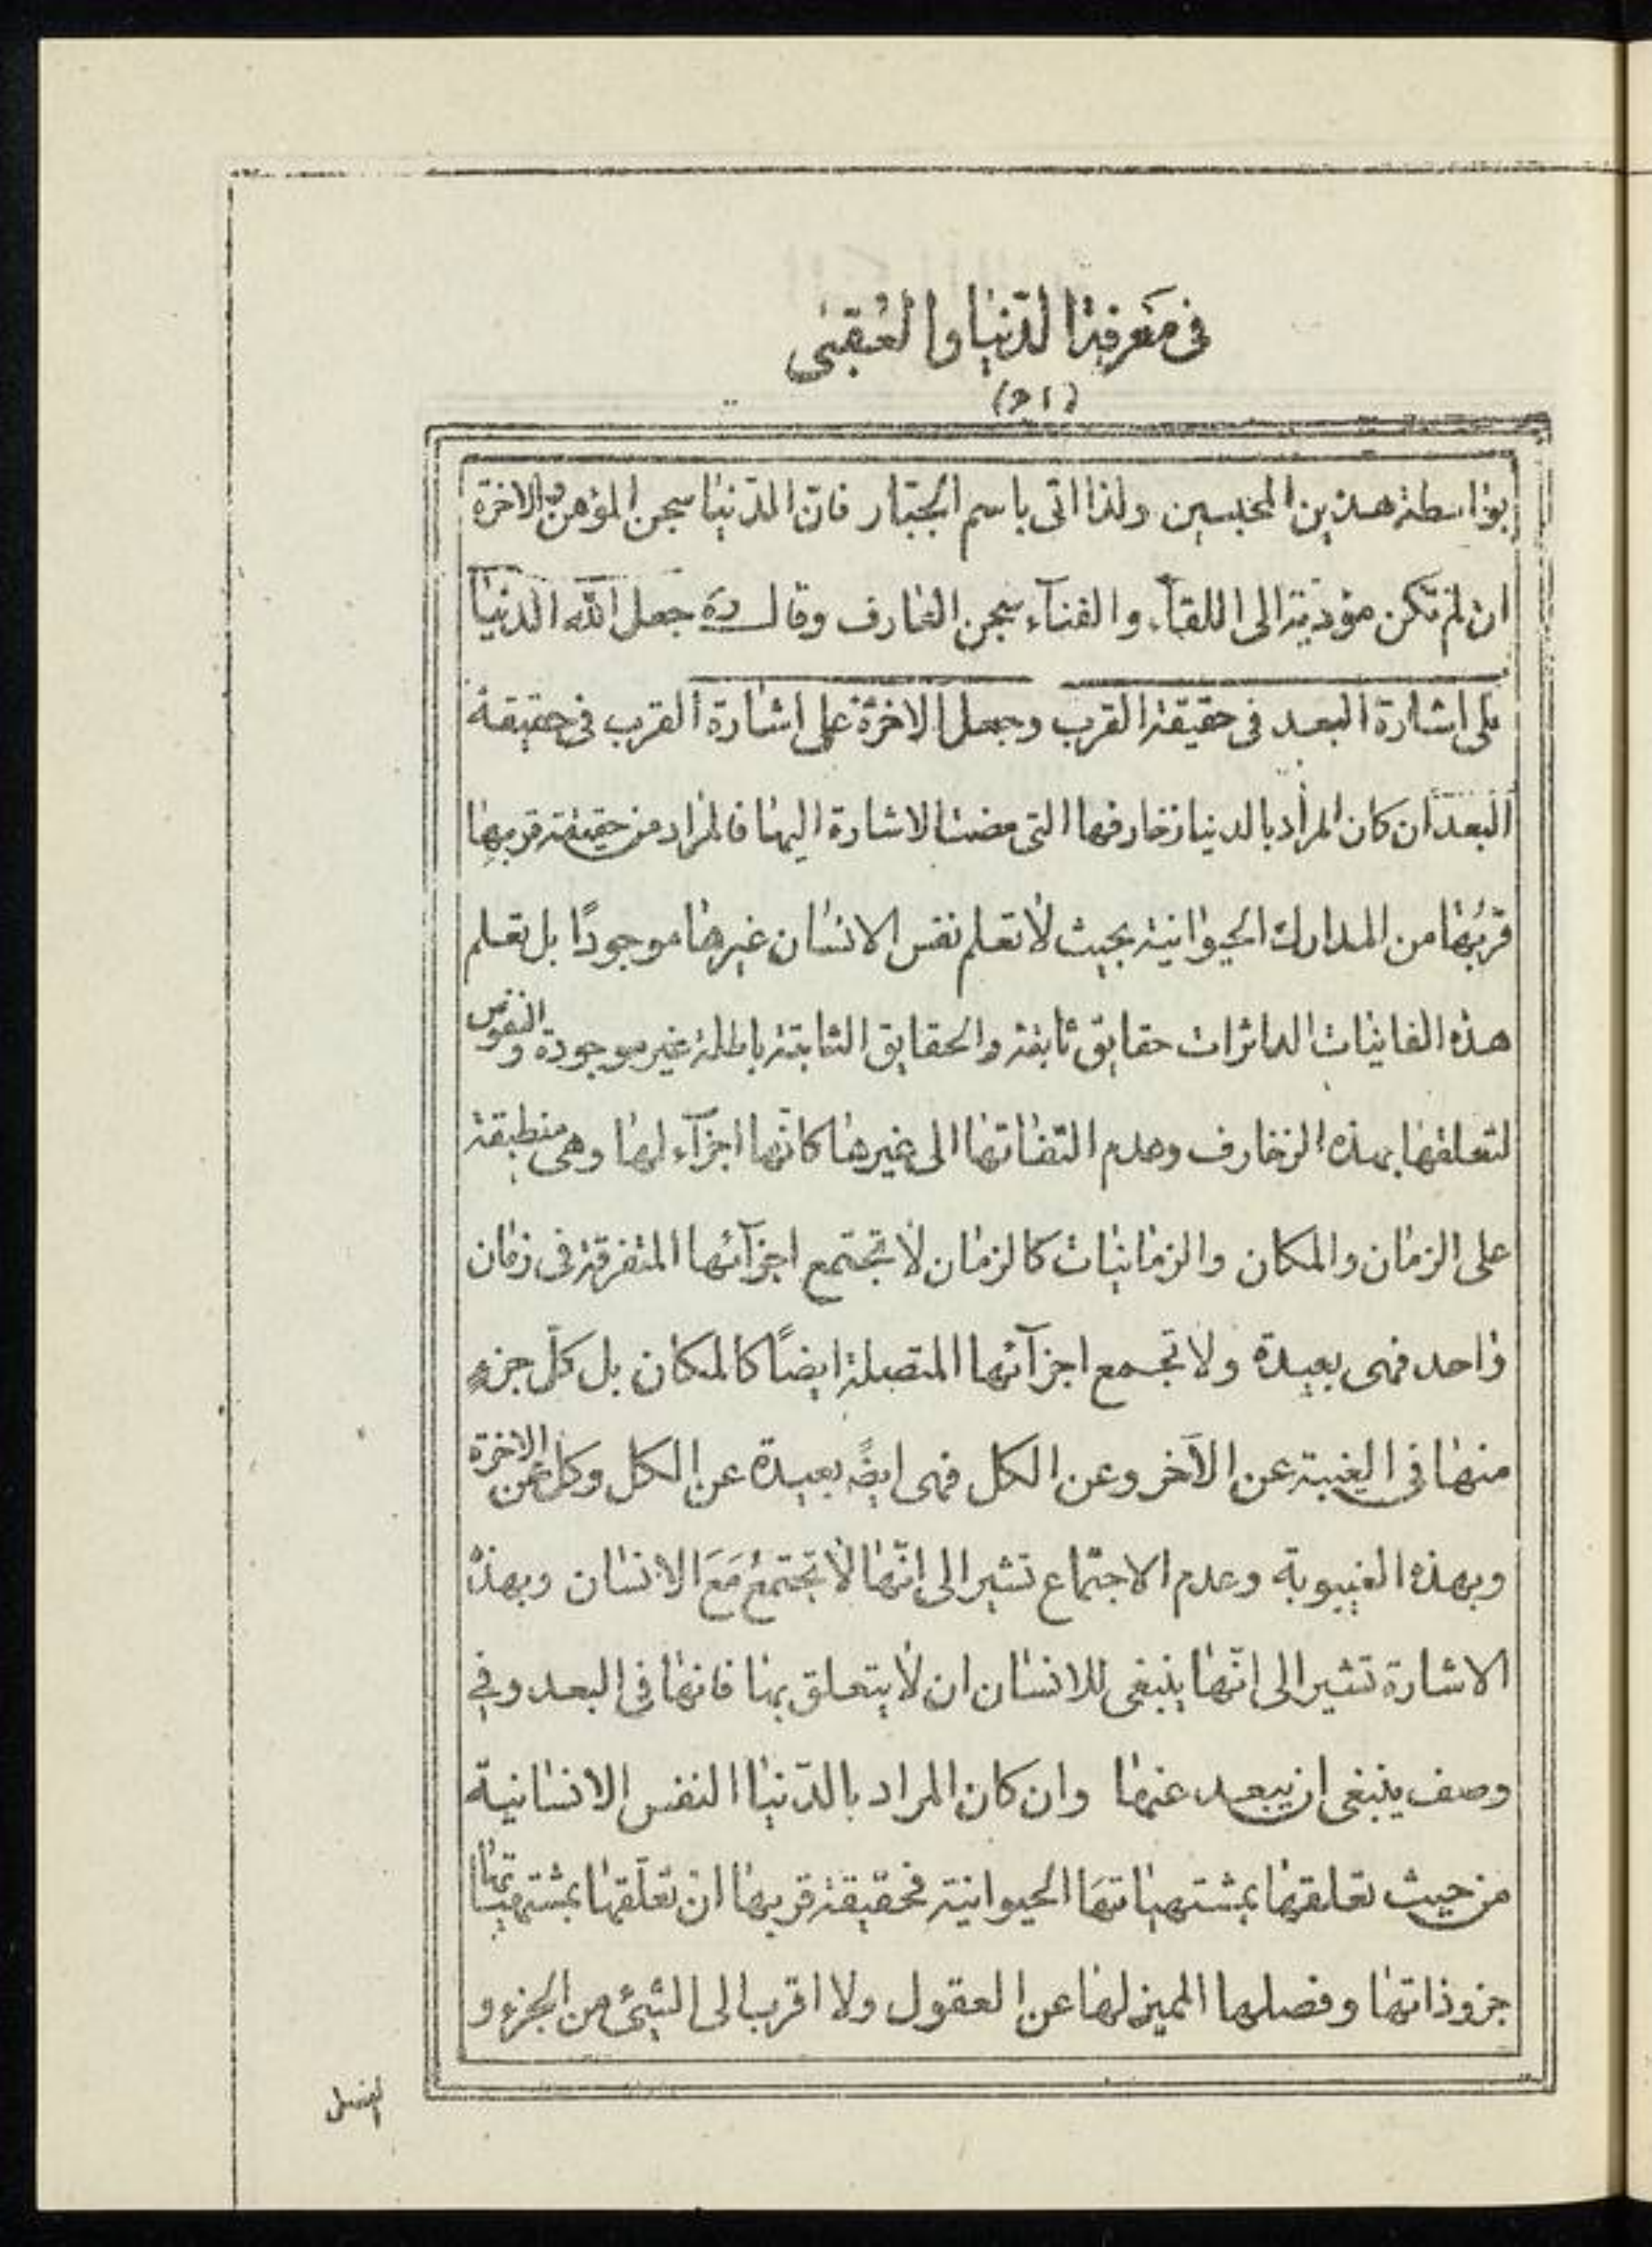 فی مَعرفة الدّنیا والعُقبی
بواسطة هذین المحبسین ولذا اتی باسم الجبّار فانّ الدّنیا سجن المؤمن والاخرة
ان لم تکن مؤدیة الی اللقآء والفنآء سجن العارف وقال ره جعل الله الدنیا
علی اشارة البعد فی حقیقة القرب وجعل الاخرة علی اشارة القرب فی حقیقة
البعد ان کان المراد بالدنیا زخارفها التی مضت الاشارة الیها فالمراد من حقیقة قربها
قربُها من المدارك الحیوانیة بحیث لا تعلم نفس الانسان غیرها موجودًا بل تعلم
هذه الفانیات الداثرات حقایق ثابتة والحقایق الثابتة باطلة غیر موجودة والنفوس
لتعلقها بهذه الزخارف وعدم التفاتها الی غیرها کانّها اجزآء لها وهی منطبقة
علی الزمان والمکان والزمانیات کالزمان لا تجتمع اجزآئها المتفرقة فی زمان
واحد فهی بعیدة ولا تجمع اجزآئها المتصلة ایضًا کالمکان بل کلّ جزءٍ
منها فی الغیبة عن الآخر وعن الکل فهی ایضً بعیدة عن الکل وکل عن الاخرة
وبهذه الغیبوبة وعدم الاجتماع تشیر الی انّها لا تجتمعُ مَعَ الانسان وبهذه
الاشارة تشیر الی انّها ینبغی للانسان ان لا یتعلق بها فانها فی البعد وفی
وصف ینبغی ان یبعد عنها وان کان المراد بالدّنیا النفس الانسانیة
من حیث تعلقها بمشتهیاتهَا الحیوانیة فحقیقة قربها انّ تعلّقها بمشتهیاتها
جزو ذاتها وفصلها الممیز لها عن العقول ولا اقرب الی الشیئ من الجزء و
الفصل